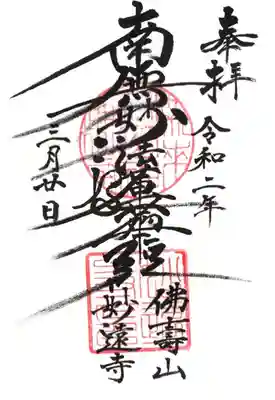 奉拝
令和二年
南無妙法蓮華経
三月廿日
佛壽山
妙遠寺